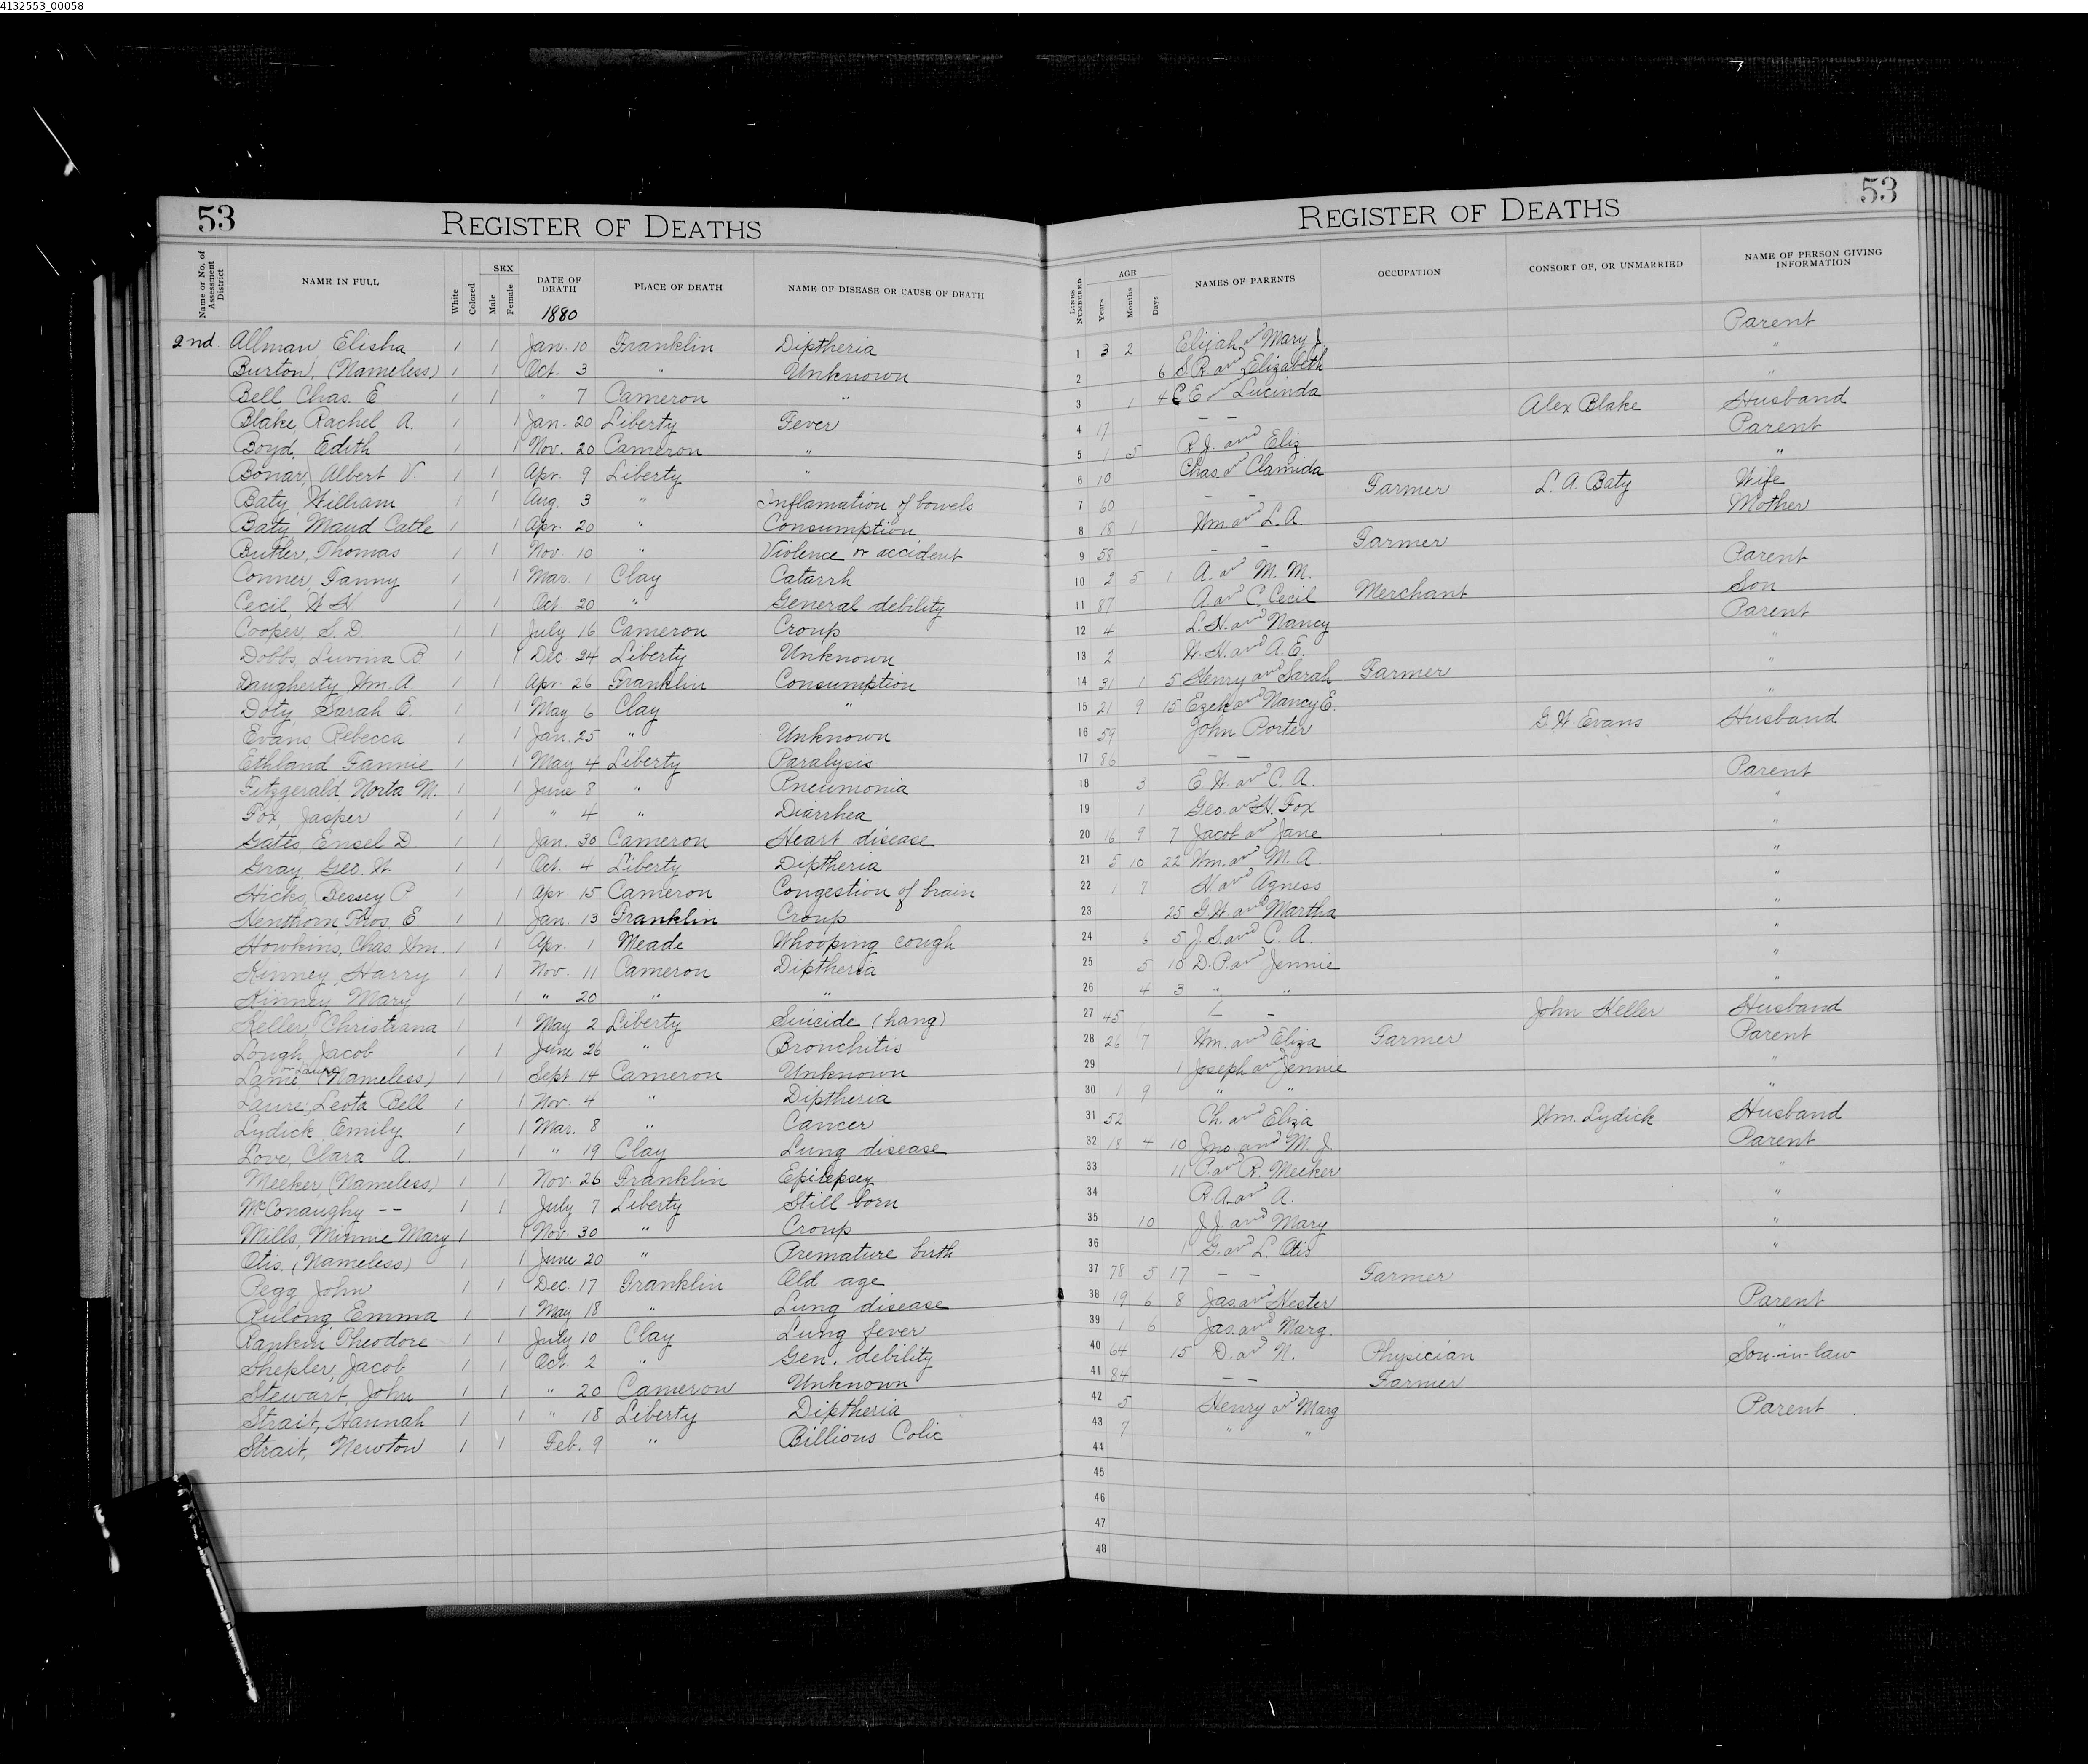 4132553_00058
53 REGISTER OF DEATHS
Name or No. of Assessment District NAME IN FULL White Colored SEX Male Female DATE OF DEATH PLACE OF DEATH NAME OF DISEASE OR CAUSE OF DEATH
1880
2nd. Allman Elisha 1 1 Jan. 10 Franklin Diptheria
Burton, (Nameless) 1 1 Oct. 3 " Unknown
Bell Chas. E 1 1 " 7 Cameron "
Blake, Rachel A. 1 1 Jan. 20 Liberty Fever
Boyd, Edith 1 1 Nov. 20 Cameron "
Bonar, Albert V. 1 1 Apr. 9 Liberty "
Baty, William 1 1 Aug. 3 " Inflamation of bowels
Baty, Maud Catle 1 1 Apr. 20 " Consumption
Butler, Thomas 1 1 Nov. 10 " Violence or accident
Conner, Fanny 1 1 Mar. 1 Clay Catarrh
Cecil, W H 1 1 Oct 20 " General debility
Cooper, S. D 1 1 July 16 Cameron Croup
Dobbs, Luvina B. 1 1 Dec 24 Liberty Unknown
Daugherty, Wm. A. 1 1 Apr. 26 Franklin Consumption
Doty, Sarah E. 1 1 May 6 Clay "
Evans, Rebecca 1 1 Jan. 25 " Unknown
Ethland Fannie 1 1 May 4 Liberty Paralysis
Fitzgerald Norta M. 1 1 June 8 " Pneumonia
Fox, Jasper 1 1 " 4 " Diarrhea
Gatts, Ensel D. 1 1 Jan. 30 Cameron Heart disease
Gray Geo. W. 1 1 Oct. 4 Liberty Diptheria
Hicks, Bessey P 1 1 Apr. 15 Cameron Congestion of brain
Henthorn E 1 1 Jan. 13 Franklin Croup
Howkins, Chas. Wm. 1 1 Apr. 1 Meade Whooping cough
Kinney, Harry 1 1 Nov. 11 Cameron Diptheria
Kinney Mary 1 1 " 20 " "
Keller, Christiana 1 1 May 2 Liberty Suicide (hang)
Lough, Jacob 1 1 June 26 " Bronchitis
Lame or Laure (Nameless) 1 1 Sept 14 Cameron Unknown
Laure, Leota Bell 1 1 Nov. 4 " Diptheria
Lydick, Emily 1 1 Mar. 8 " Cancer
Love, Clara A. 1 1 " 19 Clay Lung disease
Meeker, (Nameless) 1 1 Nov. 26 Franklin Epilepsey
McConaughy -- 1 1 July 7 Liberty Still born
Mills, Minnie Mary 1 1 Nov. 30 " Croup
Otis, (Nameless) 1 1 June 20 " Premature birth
Pegg John 1 1 Dec. 17 Franklin Old age
Rulong Emma 1 1 May 18 " Lung disease
Rankin Theodore 1 1 July 10 Clay Lung fever
Shepler, Jacob 1 1 Oct. 2 " Gen. debility
Stewart, John 1 1 " 20 Cameron Unknown
Strait, Hannah 1 1 " 18 Liberty Diptheria
Strait, Newton 1 1 Feb. 9 " Billious Colic
REGISTER OF DEATHS 53
LINES NUMBERED AGE Years Months Days NAMES OF PARENTS OCCUPATION CONSORT OF, OR UNMARRIED NAME OF PERSON GIVING INFORMATION
1 3 2 Elijah and Mary J. Parent
2 6 S. R. and Elizabeth "
3 1 4 C E and Lucinda "
4 17 — — Alex Blake Husband
5 1 5 R. J. and Eliz Parent
6 10 Chas. and Clamida "
7 60 — — Farmer L. A. Baty Wife
8 18 1 Wm. and L. A. Mother
9 58 — — Farmer
10 2 5 1 A. and M. M. Parent
11 87 A. and C. Cecil Merchant Son
12 4 L. H. and Nancy Parent
13 2 W. H. and A. E. "
14 31 1 5 Henry and Sarah Farmer "
15 21 9 15 Ezek and Nancy E. "
16 59 John Porter G. W. Evans Husband
17 86 — —
18 3 E. W. and C. A. Parent
19 1 Geo. and H. Fox "
20 16 9 7 Jacob and Jane "
21 5 10 22 Wm. and M. A. "
22 1 7 H. and Agness "
23 25 G. W. and Martha "
24 6 5 J. S. and C. A. "
25 5 10 D. P. and Jennie "
26 4 3 " " "
27 45 — — John Keller Husband
28 26 7 Wm. and Eliza Farmer Parent
29 1 Joseph and Jennie "
30 1 9 " " "
31 52 Ch. and Eliza Wm. Lydick Husband
32 18 4 10 Jno. and M. J. Parent
33 11 P. and R. Meeker "
34 R. A. and A. "
35 10 J. J. and Mary "
36 1 G. and L. Otis "
37 78 5 17 — — Farmer
38 19 6 8 Jas. and Hester Parent
39 1 6 Jas. and Marg. "
40 64 15 D. and N. Physician Son-in-law
41 84 — — Farmer
42 5 Henry and Marg Parent
43 7 " "
44
45
46
47
48